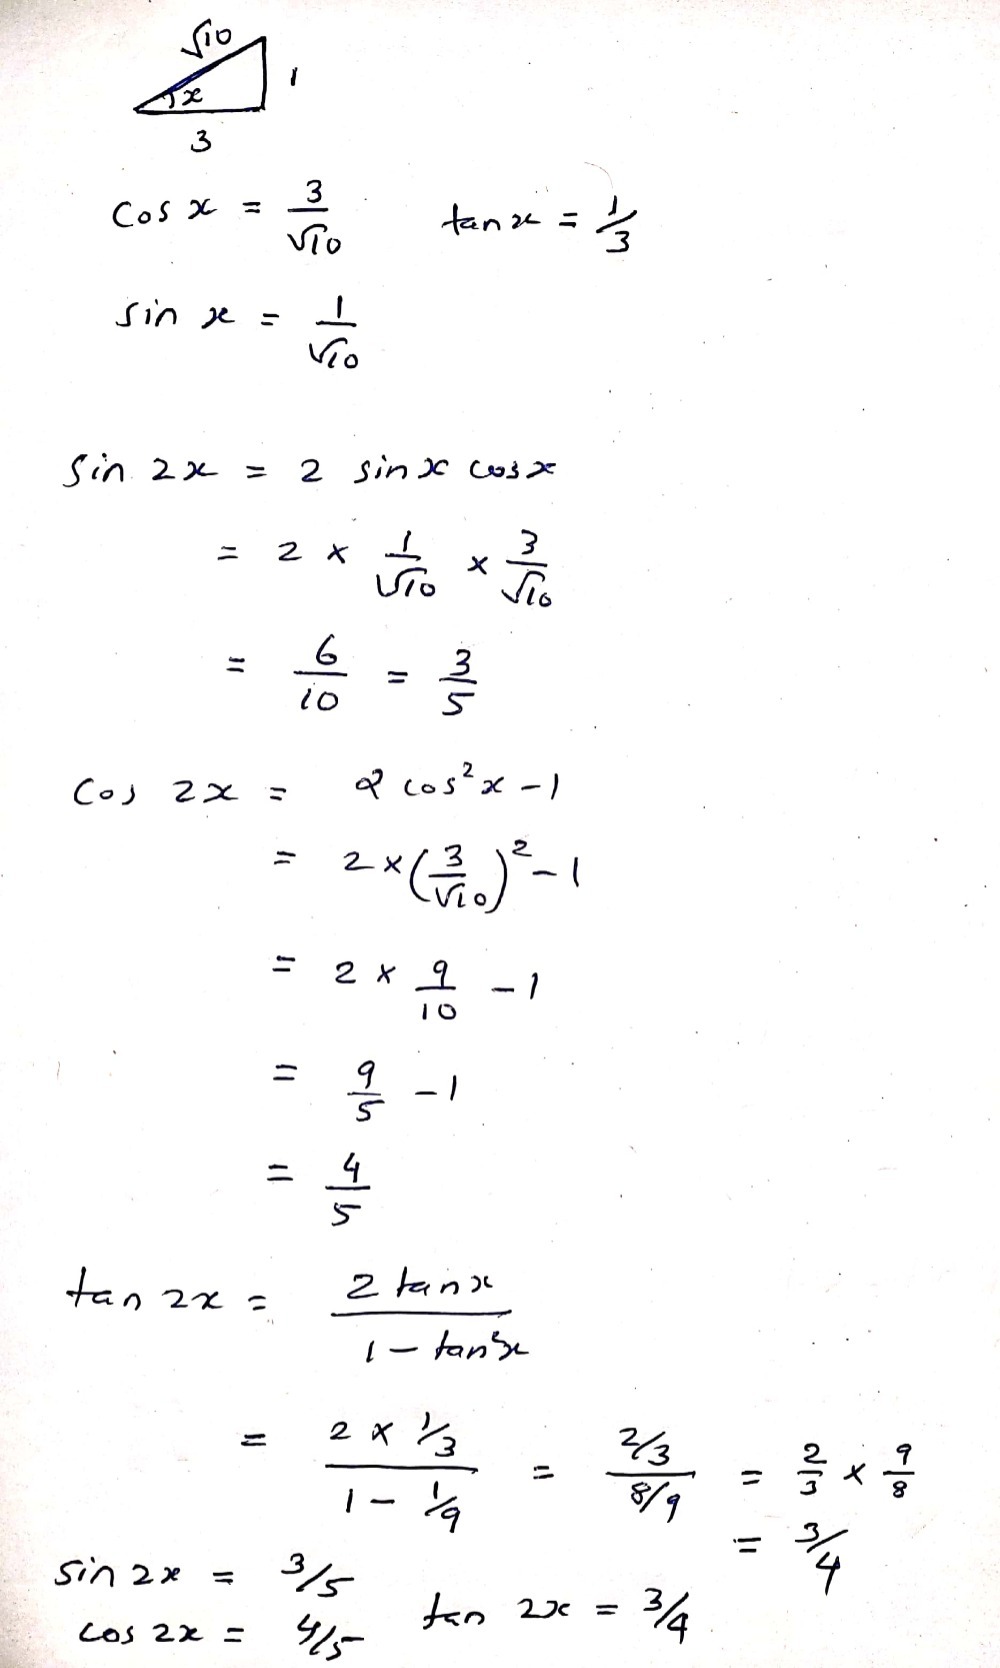 √10
1
x
3
cos x = 3/√10 tan x = 1/3
sin x = 1/√10
sin 2x = 2 sin x cos x
= 2 × 1/√10 × 3/√10
= 6/10 = 3/5
cos 2x = 2 cos²x - 1
= 2 × (3/√10)² - 1
= 2 × 9/10 - 1
= 9/5 - 1
= 4/5
tan 2x = 2 tan x / (1 - tan²x)
= (2 × 1/3) / (1 - 1/9) = (2/3) / (8/9) = 2/3 × 9/8
= 3/4
sin 2x = 3/5
cos 2x = 4/5 tan 2x = 3/4